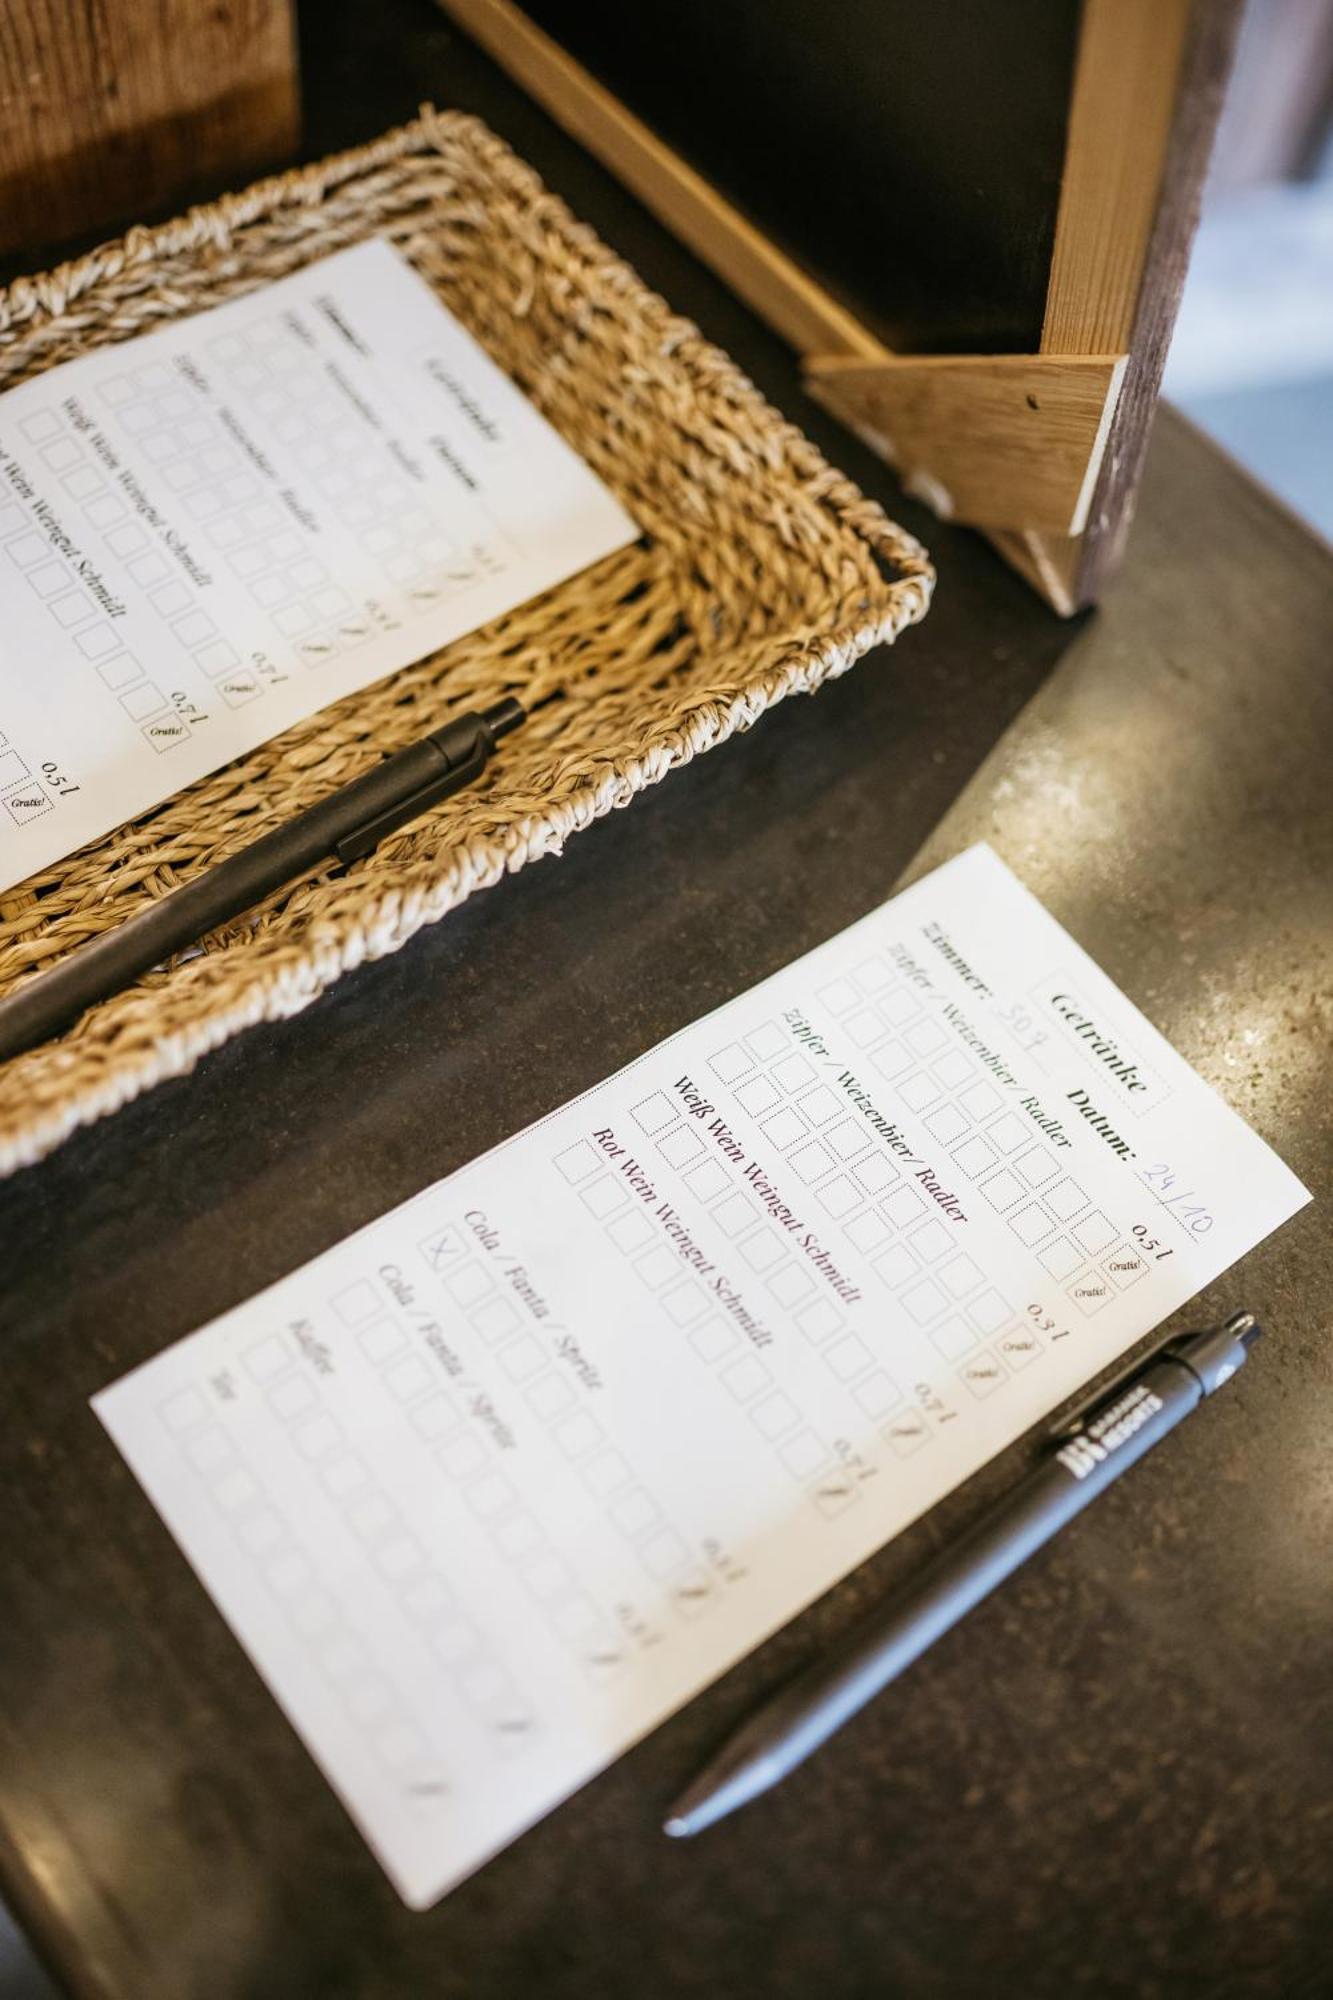 Getränke
Zimmer: 507 Datum: 24/10
Zipfer / Weizenbier / Radler 0,5 l
Gratis!
Gratis!
Zipfer / Weizenbier / Radler 0,3 l
Gratis!
Gratis!
Weiß Wein Weingut Schmidt 0,7 l
Rot Wein Weingut Schmidt 0,7 l
Cola / Fanta / Sprite
X
Cola / Fanta / Sprite
Kaffee
Tee
Getränke
Datum
Zipfer / Weizenbier / Radler
Zipfer / Weizenbier / Radler
Weiß Wein Weingut Schmidt 0,7 l
Gratis!
Wein Weingut Schmidt 0,7 l
Gratis!
0,5 l
Gratis!
RESORTS